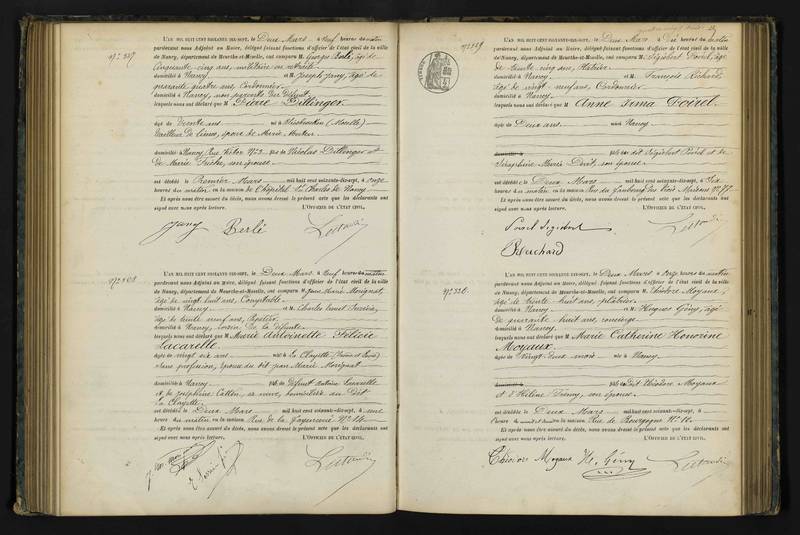 L'AN MIL HUIT CENT SOIXANTE-DIX-SEPT, le Deux Mars à Neuf heures du matin
pardevant nous Adjoint au Maire, délégué faisant fonctions d'officier de l'état civil de la ville
de Nancy, département de Meurthe-et-Moselle, ont comparu M. Georges Berlé, âgé de
Cinquante cinq ans, militaire en retraite
domicilié à Nancy et M. Joseph Jany, âgé de
quarante quatre ans, Cordonnier
domicilié à Nancy, non parents du défunt
lesquels nous ont déclaré que M. Pierre Dillinger
âgé de Trente ans né à (Moselle)
tailleur de limes, époux de Marie
domicilié à Nancy, Rue Victor fils de Nicolas Dillinger et
de Marie son épouse
est décédé le Premier Mars mil huit cent soixante-dix-sept, à onze
heures du matin, en la maison de l'hôpital St Charles de Nancy
Et après nous être assuré du décès, nous avons dressé le présent acte que les déclarants ont
signé avec nous après lecture. L'OFFICIER DE L'ÉTAT CIVIL,
Jany Berlé
L'AN MIL HUIT CENT SOIXANTE-DIX-SEPT, le Deux Mars à Neuf heures du matin
pardevant nous Adjoint au Maire, délégué faisant fonctions d'officier de l'état civil de la ville
de Nancy, département de Meurthe-et-Moselle, ont comparu M. Jean Marie Morignat,
âgé de vingt huit ans, Comptable
domicilié à Nancy et M. Charles Ernest
âgé de trente neuf ans,
domicilié à Nancy, voisin de la défunte
lesquels nous ont déclaré que M. Marie Antoinette Félicie
Lacarelle
âgée de vingt six ans née à La Clayette (Saône et Loire)
sans profession, épouse du dit Jean Marie Morignat
domiciliée à Nancy fille de défunt Antoine Lacarelle
et de Joséphine sa veuve, domiciliée au dit
La Clayette
est décédée le Deux Mars mil huit cent soixante-dix-sept, à une
heure du matin, en la maison Rue de la No 14
Et après nous être assuré du décès, nous avons dressé le présent acte que les déclarants ont
signé avec nous après lecture. L'OFFICIER DE L'ÉTAT CIVIL,
L'AN MIL HUIT CENT SOIXANTE-DIX-SEPT, le Deux Mars à Dix heures du matin
pardevant nous Adjoint au Maire, délégué faisant fonctions d'officier de l'état civil de la ville
de Nancy, département de Meurthe-et-Moselle, ont comparu M. Sigisbert Poirel, âgé
de trente cinq ans,
domicilié à Nancy et M. François
âgé de vingt neuf ans, Cordonnier
domicilié à Nancy
lesquels nous ont déclaré que M. Anne Irma Poirel
âgée de Deux ans née à Nancy
fille du dit Sigisbert Poirel et de
Séraphine Marie son épouse
est décédée le Deux Mars mil huit cent soixante-dix-sept, à Six
heures du matin, en la maison Rue du faubourg des Trois Maisons No 77
Et après nous être assuré du décès, nous avons dressé le présent acte que les déclarants ont
signé avec nous après lecture. L'OFFICIER DE L'ÉTAT CIVIL,
Poirel Sigisbert
L'AN MIL HUIT CENT SOIXANTE-DIX-SEPT, le Deux Mars à Onze heures du matin
pardevant nous Adjoint au Maire, délégué faisant fonctions d'officier de l'état civil de la ville
de Nancy, département de Meurthe-et-Moselle, ont comparu M. Théodore Moyaux,
âgé de trente huit ans, plâtrier
domicilié à Nancy et M. Hugues Gény, âgé
de quarante huit ans, concierge
domicilié à Nancy
lesquels nous ont déclaré que M. Marie Catherine Honorine
Moyaux
âgée de Vingt deux mois née à Nancy
fille du dit Théodore Moyaux
et d'Hélène son épouse
est décédée le Deux Mars mil huit cent soixante-dix-sept, à
heure du matin en la maison Rue de Bourgogne No 11
Et après nous être assuré du décès, nous avons dressé le présent acte que les déclarants ont
signé avec nous après lecture. L'OFFICIER DE L'ÉTAT CIVIL,
Théodore Moyaux H. Gény